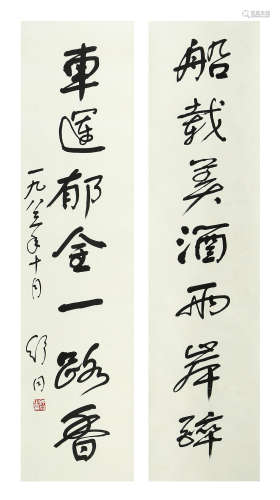 船载美酒两岸醉
車運郁金一路香
一九八三年十月
舒同